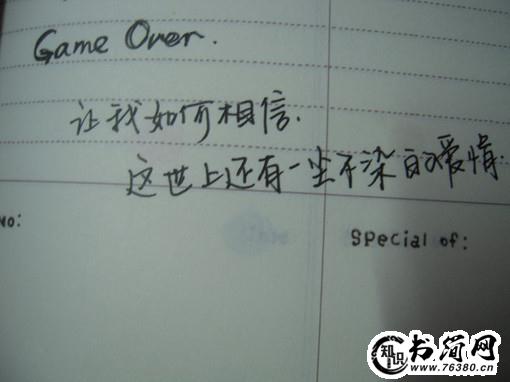 Game Over.
让我如何相信.
这世上还有一尘不染的爱情.
No:
Special of:
知识
书简网
www.76380.cn